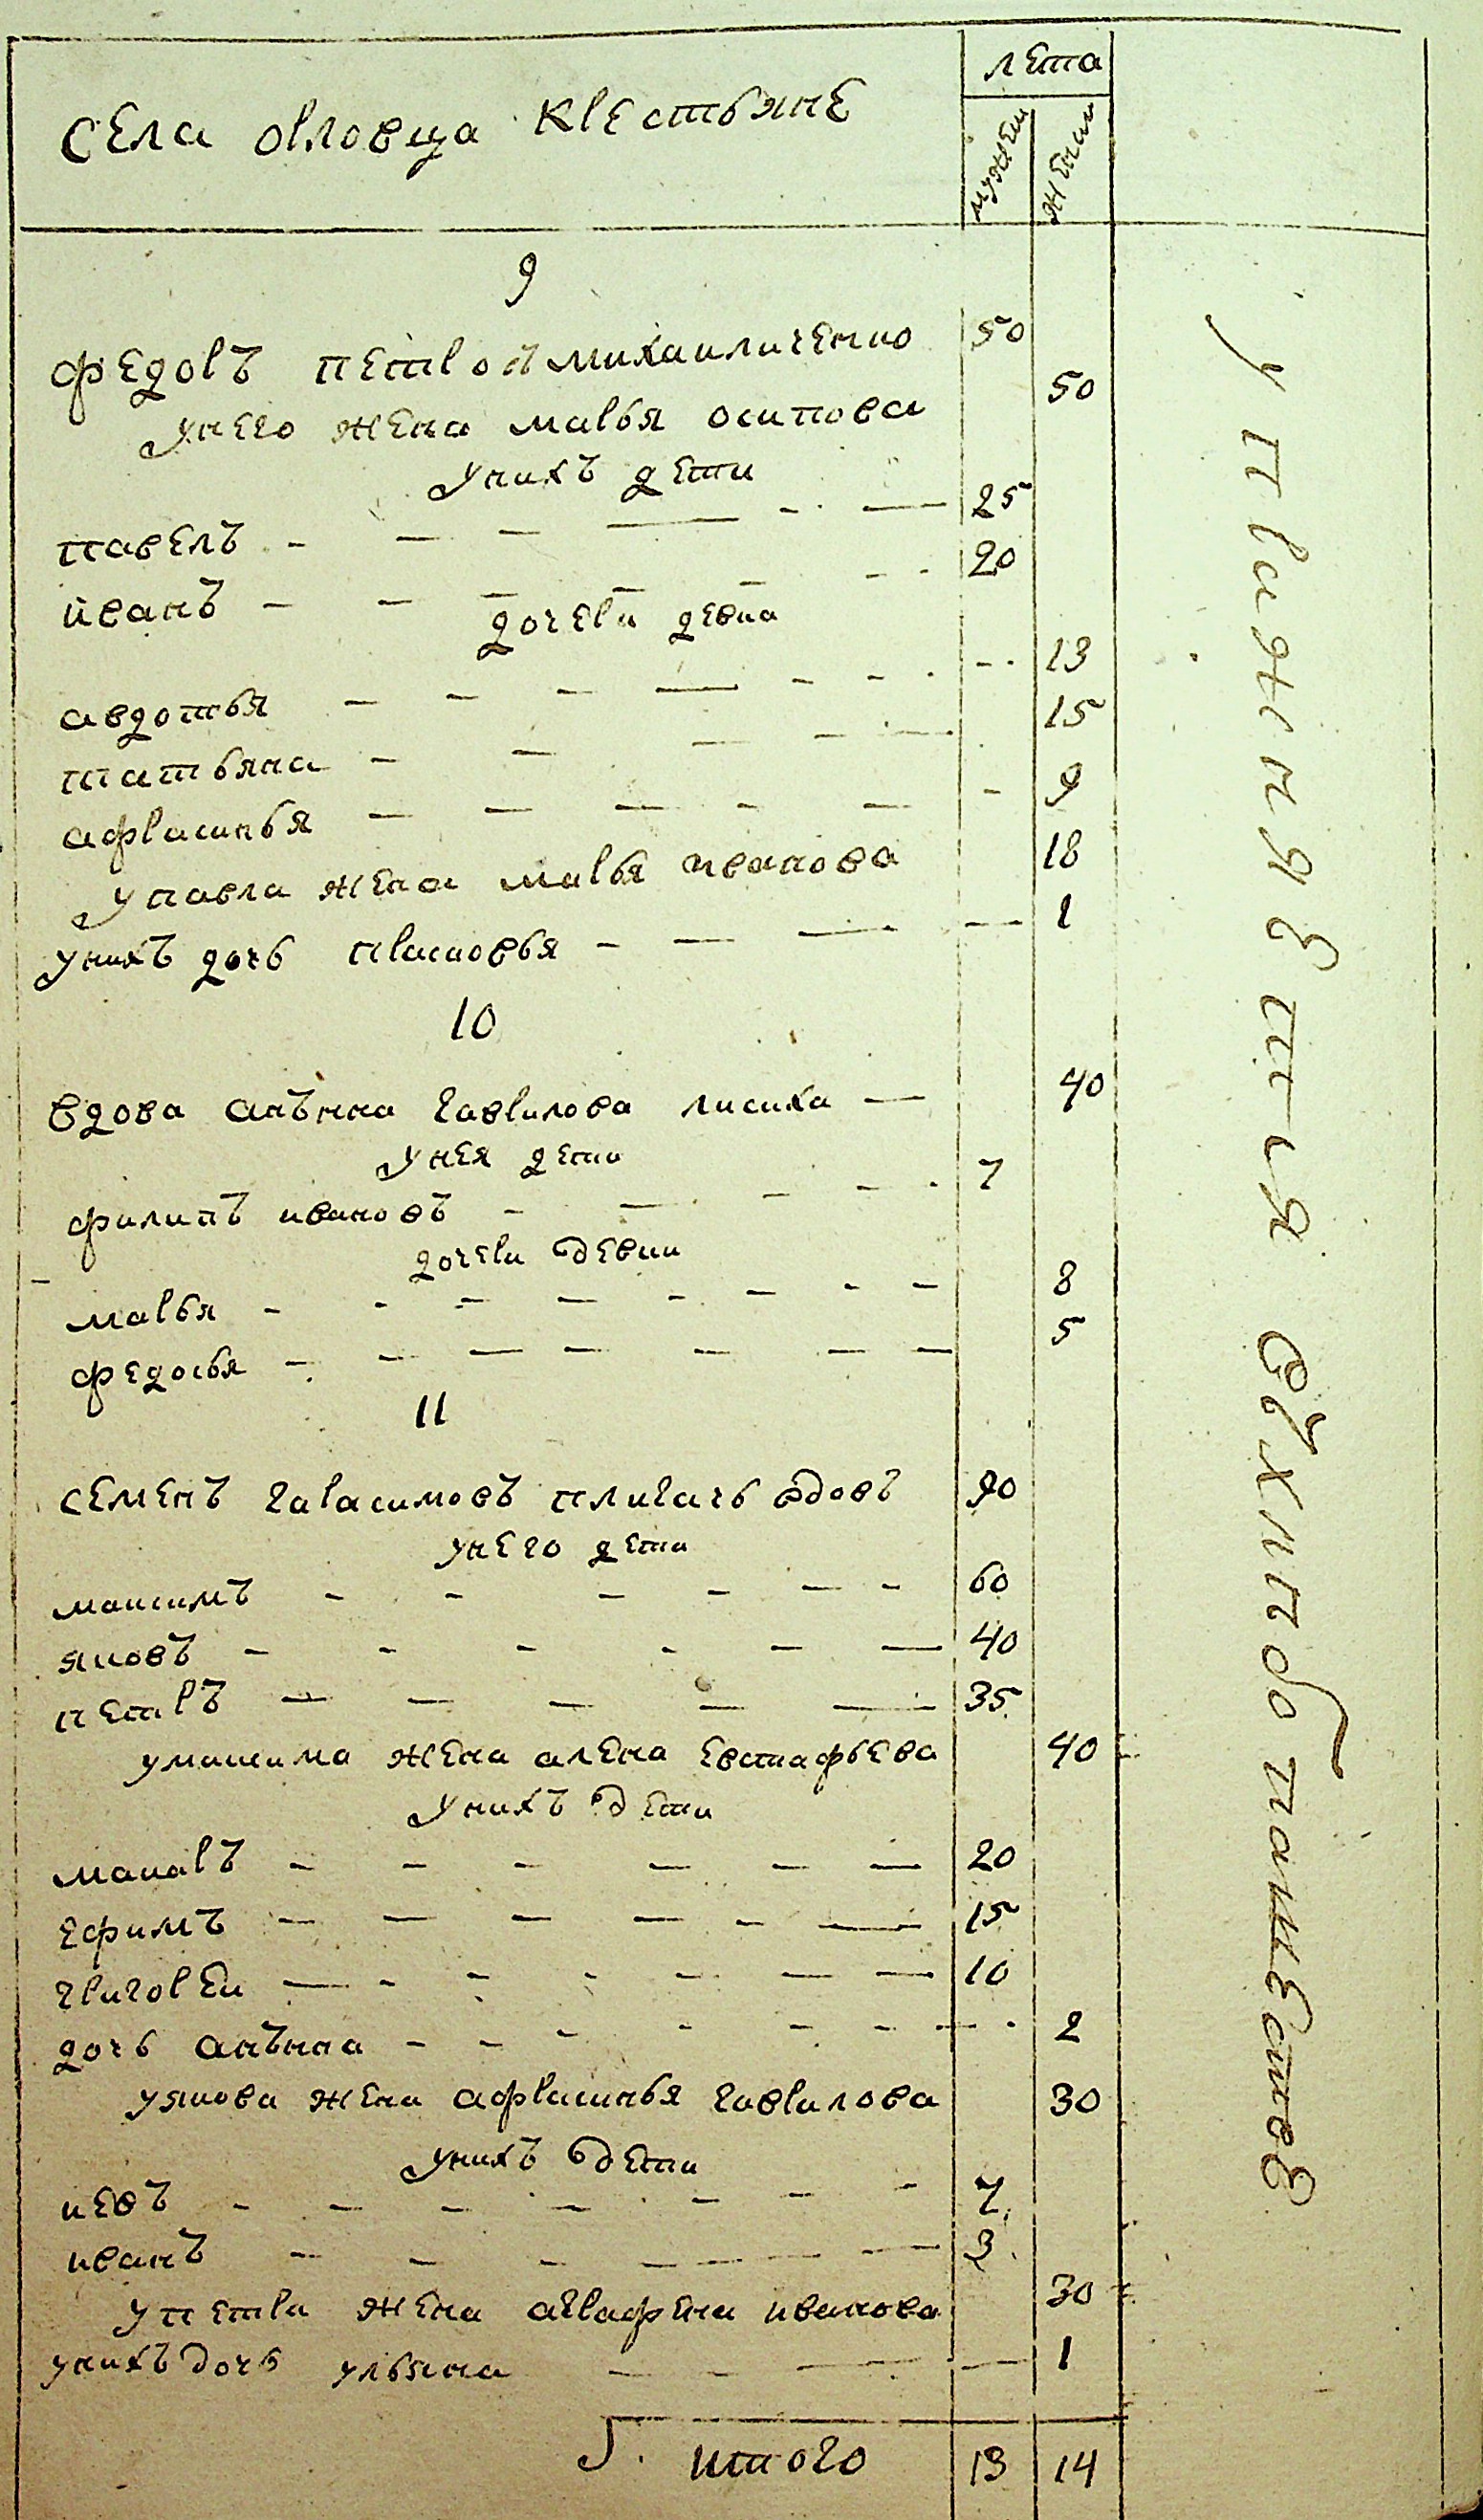 села орловца крестьяне
лета
мужеи
женш
9
федоръ петров михаиличенко 50
унего жена марья осипова 50
унихъ дети
павелъ 25
иванъ 20
дочери девки
авдотья 13
татьяна 15
афрасинья 9
упавла жена марья иванова 18
унихъ дочь прасковья 1
10
вдова анънна гаврилова лисиха 40
унея дети
филипъ ивановъ 7
дочери девки
марья 8
федосья 5
11
семенъ гарасимовъ плигачь вдовъ 90
унего дети
максимъ 60
яковъ 40
петръ 35
умаксима жена алена евстафьева 40
унихъ дети
макаръ 20
ефимъ 15
григореи 10
дочь анънна 2
уякова жена афрасинья гаврилова 30
унихъ дети
иевъ 7
иванъ 3
упетра жена аграфена иванова 30
унихъ дочь ульяна 1
итого 13 14
упражнятся вхлебопашестве